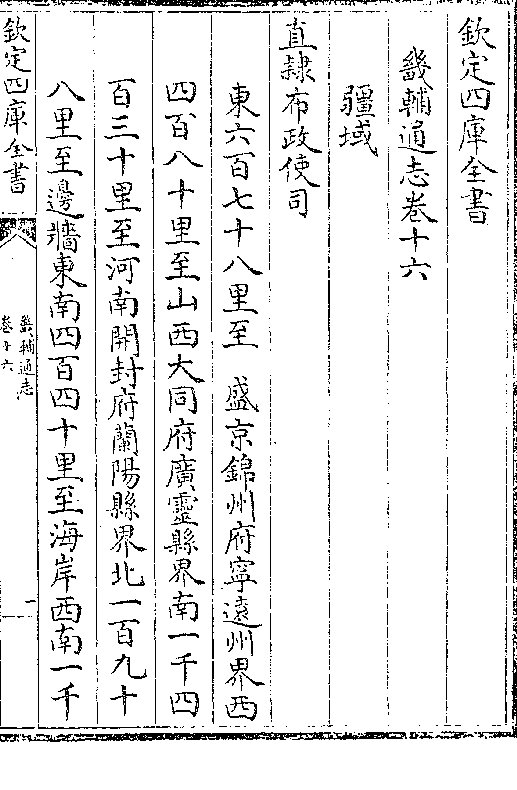 欽定四庫全書
畿輔通志卷十六
疆域
直隸布政使司
東六百七十八里至　盛京錦州府寧遠州界西
四百八十里至山西大同府廣靈縣界南一千四
百三十里至河南開封府蘭陽縣界北一百九十
八里至邊牆東南四百四十里至海岸西南一千
欽定四庫全書
畿輔通志
卷十六
一